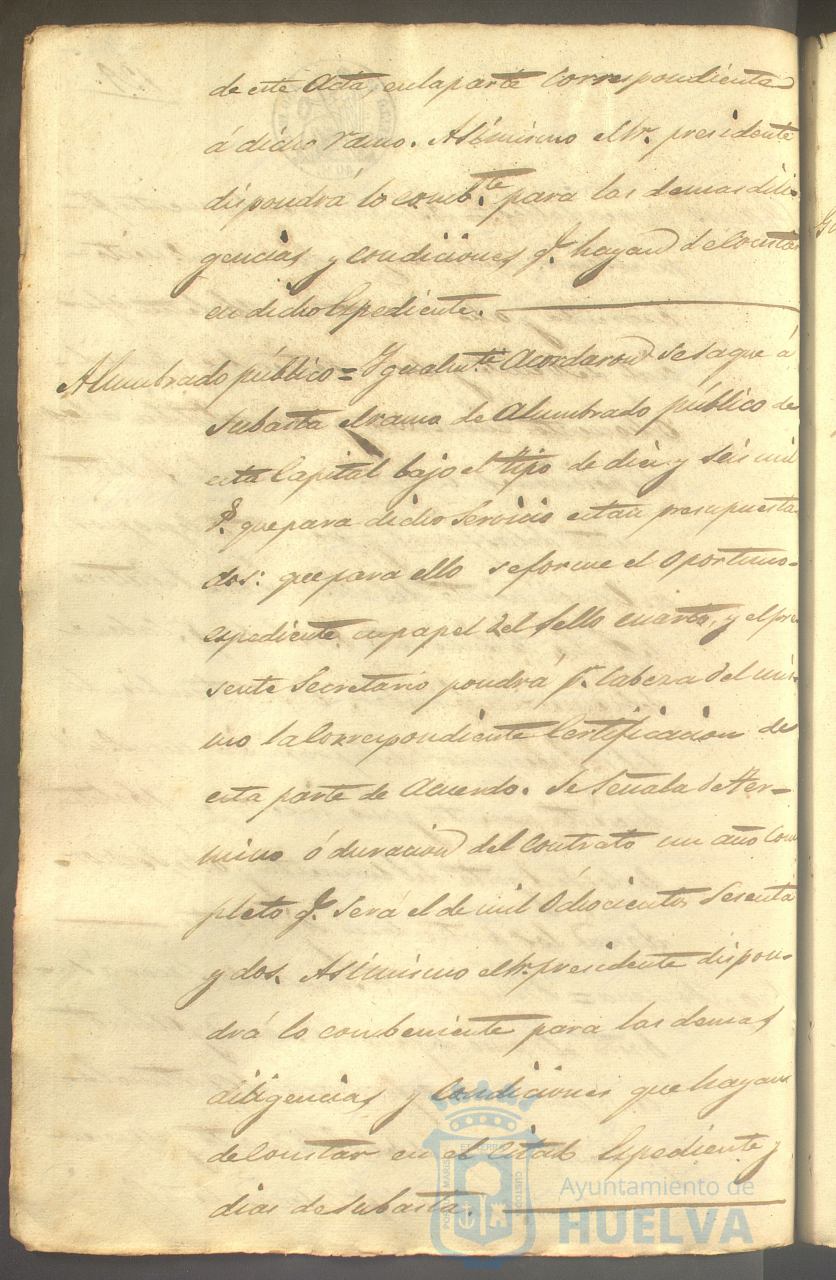 de este Acta, en la parte correspondiente
á dicho ramo. Asimismo el Sr. presidente
dispondrá lo comb.te para las demas dili-
gencias y condiciones q.e hayan de constar
en dicho Expediente.
Alumbrado público = Ygualm.te Acordaron se saque á
Subasta el ramo de Alumbrado público de
esta Capital bajo el tipo de diez y seis mil
r.s que para dicho Servicio estan presupuesta-
dos: que para ello se forme el oportuno
expediente en papel del sello cuarto, y el pre-
sente Secretario pondrá p.r cabeza del mis-
mo la Correspondiente Certificacion de
esta parte de Acuerdo. Se Señala de ter-
mino ó duracion del contrato un año com-
pleto q.e será el de mil Ochocientos Sesenta
y dos. Asimismo el Sr. presidente dispon-
drá lo combeniente para las demas
diligencias y condiciones que hayan
de constar en el citado Expediente y
dias de Subasta.
Ayuntamiento de
HUELVA